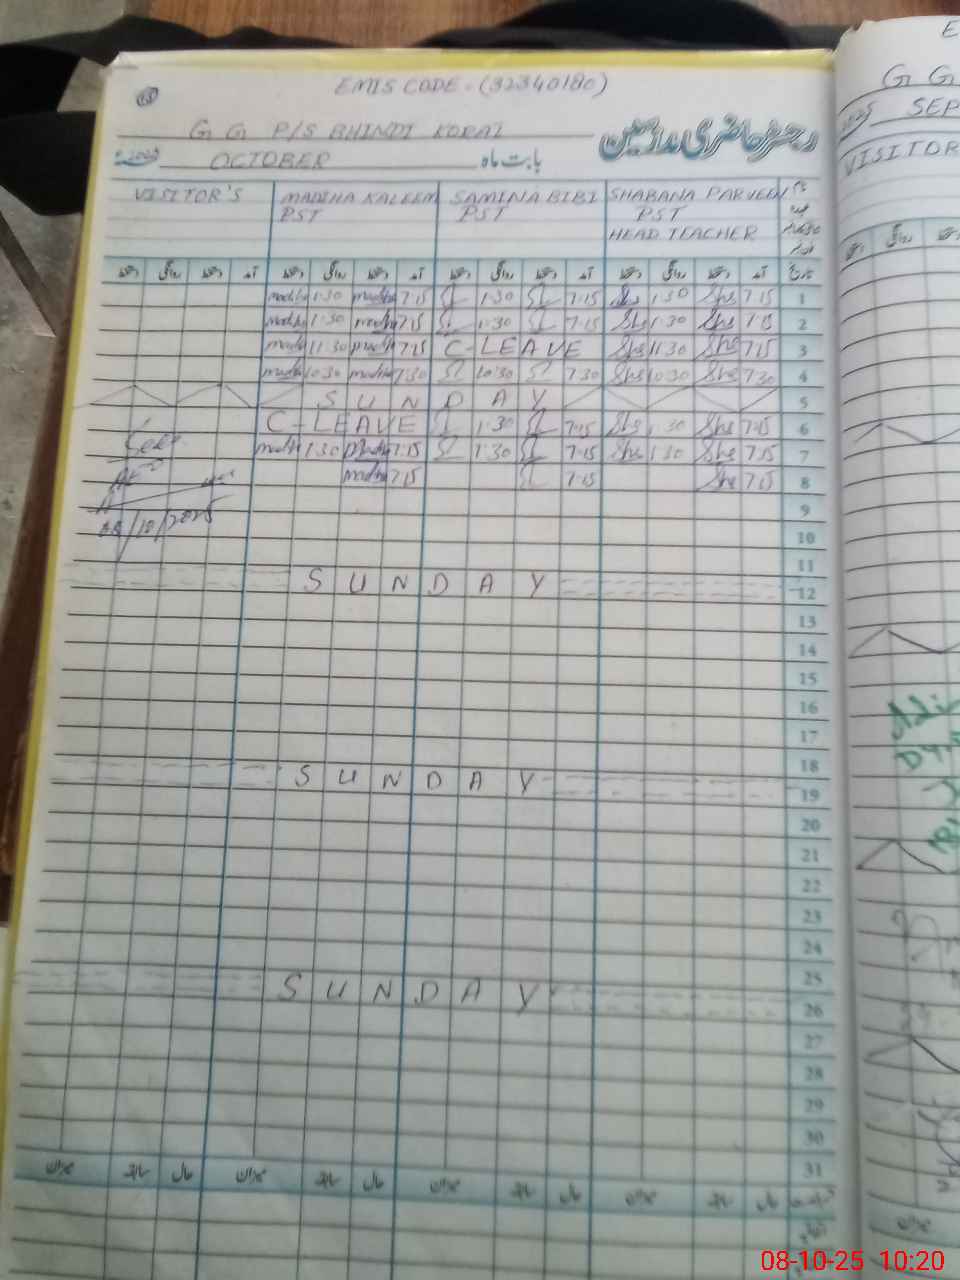 EMIS CODE - (32340180)
G G P/S BHINDI KORAI
رجسٹر حاضری ملازمین
2025 OCTOBER بابت ماہ
VISITOR'S MADIHA KALEEM SAMINA BIBI SHABANA PARVEEN
PST PST PST
HEAD TEACHER
دستخط روانگی دستخط آمد دستخط روانگی دستخط آمد دستخط روانگی دستخط آمد دستخط روانگی دستخط آمد تاریخ
madiha 1:30 madiha 7:15 1:30 7:15 Sha 1:30 Sha 7:15 1
madiha 1:30 madiha 7:15 1:30 7:15 Sha 1:30 Sha 7:15 2
madiha 11:30 madiha 7:15 C-LEAVE Sha 11:30 Sha 7:15 3
madiha 10:30 madiha 7:30 10:30 7:30 Sha 10:30 Sha 7:30 4
SUNDAY 5
C-LEAVE 1:30 7:15 Sha 1:30 Sha 7:15 6
madiha 1:30 Madiha 7:15 1:30 7:15 Sha 1:30 Sha 7:15 7
madiha 7:15 7:15 Sha 7:15 8
9
08/10/2025 10
11
SUNDAY 12
13
14
15
16
17
18
SUNDAY 19
20
21
22
23
24
25
SUNDAY 26
27
28
29
30
31
میزان سابقہ حال میزان سابقہ حال میزان سابقہ حال میزان سابقہ حال
E
G G
2025 SEP
VISITOR
08-10-25 10:20